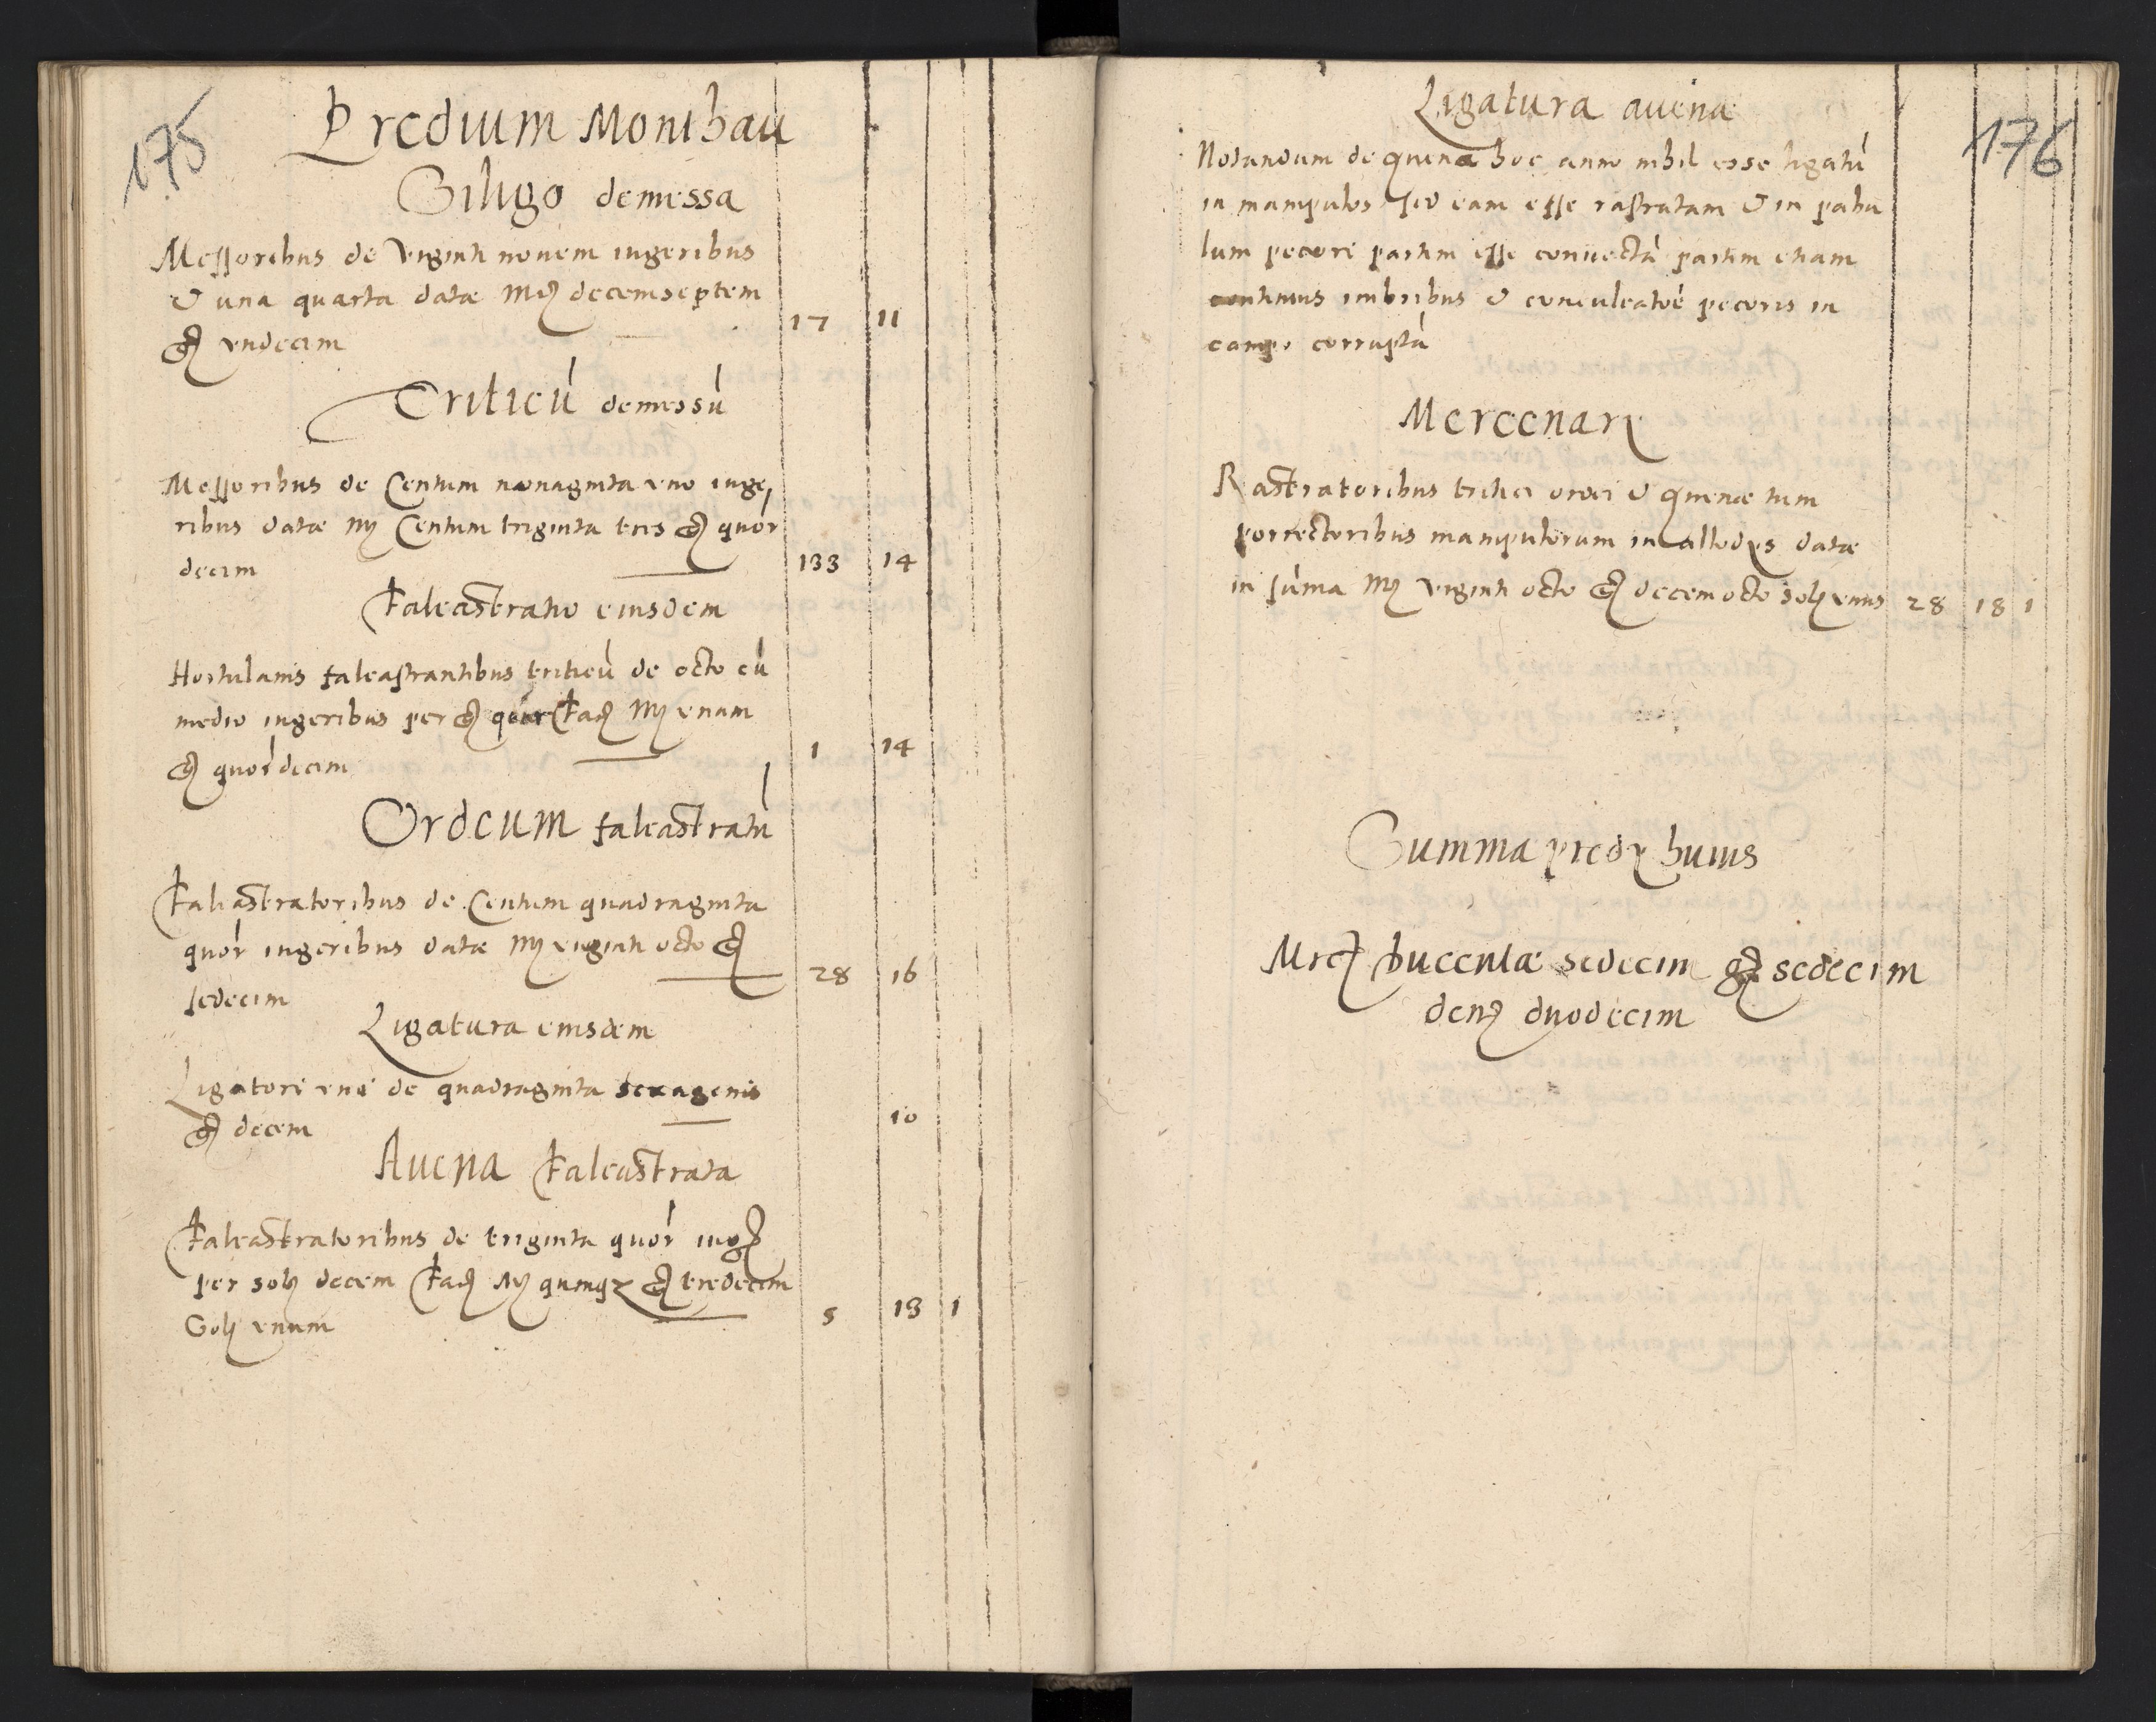 175
Predium Monthau
Siligo demessa
Messoribus de viginti novem iugeribus
& una quarta datæ mꝝ decemseptem
gꝝ undecim 17 11
Triticú demessú
Messoribus de Centum nonaginta uno iuge,
ribus datæ mꝝ Centum triginta tris gꝝ quór
decim 133 14
Falcastratio eiusdem
Hortulanis falcastrantibus triticú de octo cú
medio iugeribus per gꝝ quór facꝭ mꝝ unam
gꝝ quórdecim 1 14
Ordeum falcastratú
Falcastratoribus de Centum quadraginta
quór iugeribus datæ mꝝ viginti octo gꝝ
sedecim 28 16
Ligatura eiusdem
Ligatori uni de quadraginta sexagenis
gꝝ decem 10
Avena Falcastrata
Falcastratoribus de triginta quór iugꝝ
per solꝭ decem facꝭ mꝝ quinqꝫ gꝝ tredecim
Solꝭ unum 5 13 1
176
Ligatura avenæ
Notandum de avena hoc anno nihil esse ligatú
in manipulos sed eam esse rastratam & in pabu
lum pecori partim esse convectá partim etiam
continuis imbribus & conculcatoẽ pecoris in
campo corruptá
Mercenarÿ
Rastratoribus tritici ordei & avenæ tum
porrectoribus manipulorum in allodÿs datæ
in súma mꝝ viginti octo gꝝ decemocto solꝭ unus 28 18 1
Summa predÿ huius
Mrcꝝ ducentæ sedecim gꝝ sedecim
denꝭ duodecim